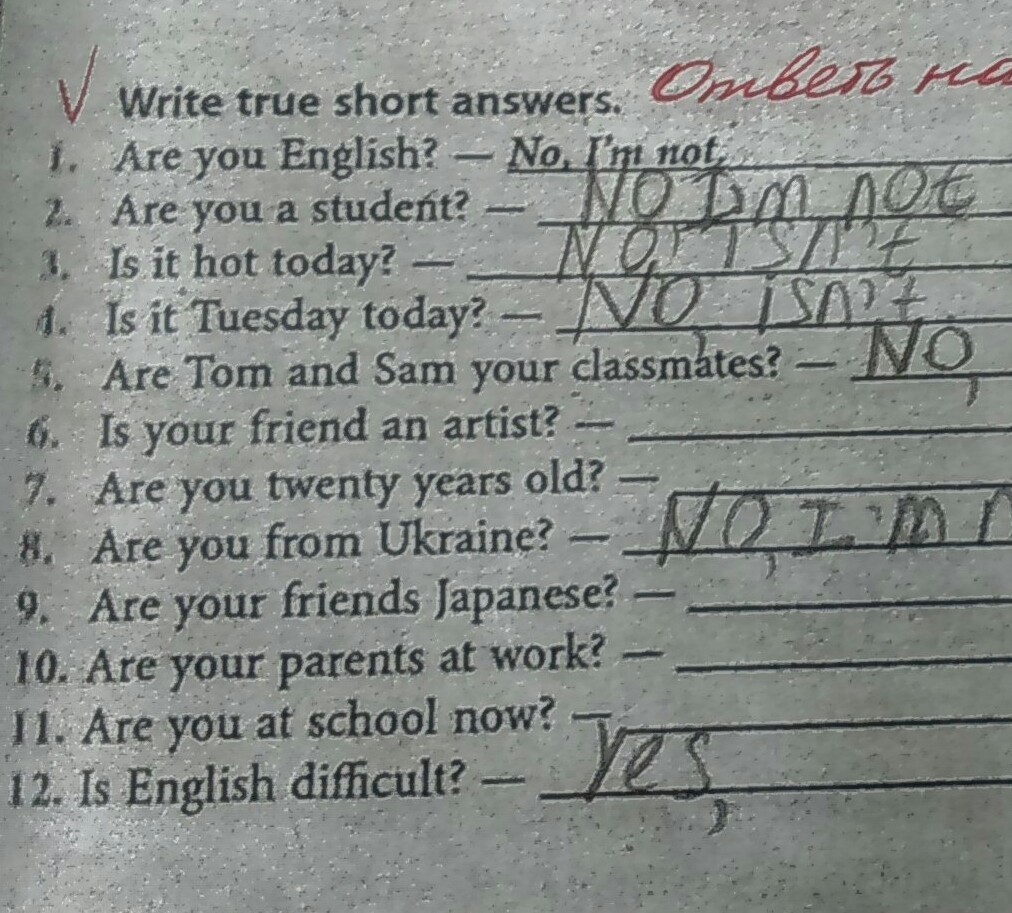 Write true short answers. Ответь на
1. Are you English? — No, I'm not.
2. Are you a student? — NO I'm not
3. Is it hot today? — NO, isn't
4. Is it Tuesday today? — NO, isn't
5. Are Tom and Sam your classmates? — NO,
6. Is your friend an artist? —
7. Are you twenty years old? —
8. Are you from Ukraine? — NO, I'm n
9. Are your friends Japanese? —
10. Are your parents at work? —
11. Are you at school now? —
12. Is English difficult? — Yes,